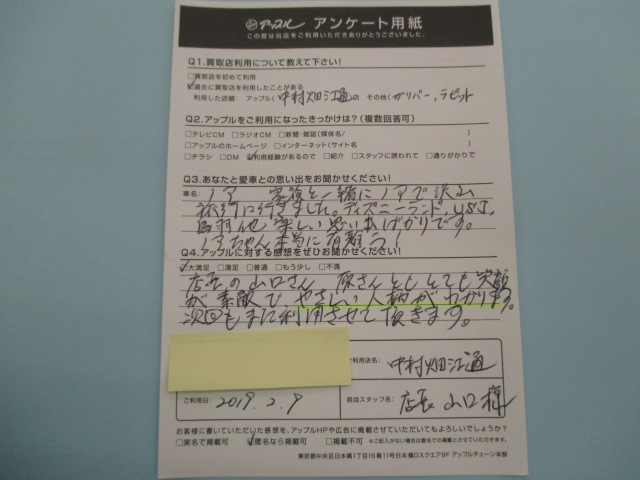 アップル アンケート用紙
この度は当店をご利用いただきありがとうございました。
Q1.買取店利用について教えて下さい!
□買取店を初めて利用
☑過去に買取店を利用したことがある
利用した店舗: アップル(中村畑江通店 その他(ガリバー、ラビット
Q2.アップルをご利用になったきっかけは?(複数回答可)
□テレビCM □ラジオCM □新聞・雑誌(媒体名/ )
□アップルのホームページ □インターネット(サイト名 )
□チラシ □DM ☑利用経験があるので □紹介 □スタッフに誘われて □通りがかりで
Q3.あなたと愛車との思い出をお聞かせください!
車名: ノア 家族と一緒にノアで沢山
旅行に行きました。ディズニーランド、USJ、
鳥羽他楽しい思い出ばかりです。
ノアちゃん本当に有難う!
Q4.アップルに対する感想をぜひお聞かせください!
☑大満足 □満足 □普通 □もう少し □不満
店長の山口さん 原さんともとても笑顔
が素敵で、やさしい人柄がわかります。
次回もまた利用させて頂きます。
ご利用店名: 中村畑江通
ご利用日: 2019.2.9
担当スタッフ名: 店長 山口様
お客様に書いていただいた感想を、アップルHPや広告に掲載させていただいてもよろしいでしょうか?
□実名で掲載可 ☑匿名なら掲載可 □掲載不可 ※ご記入がない場合は匿名での掲載とさせていただきます。
東京都中央区日本橋1丁目16番11号日本橋DスクエアBF アップルチェーン本部